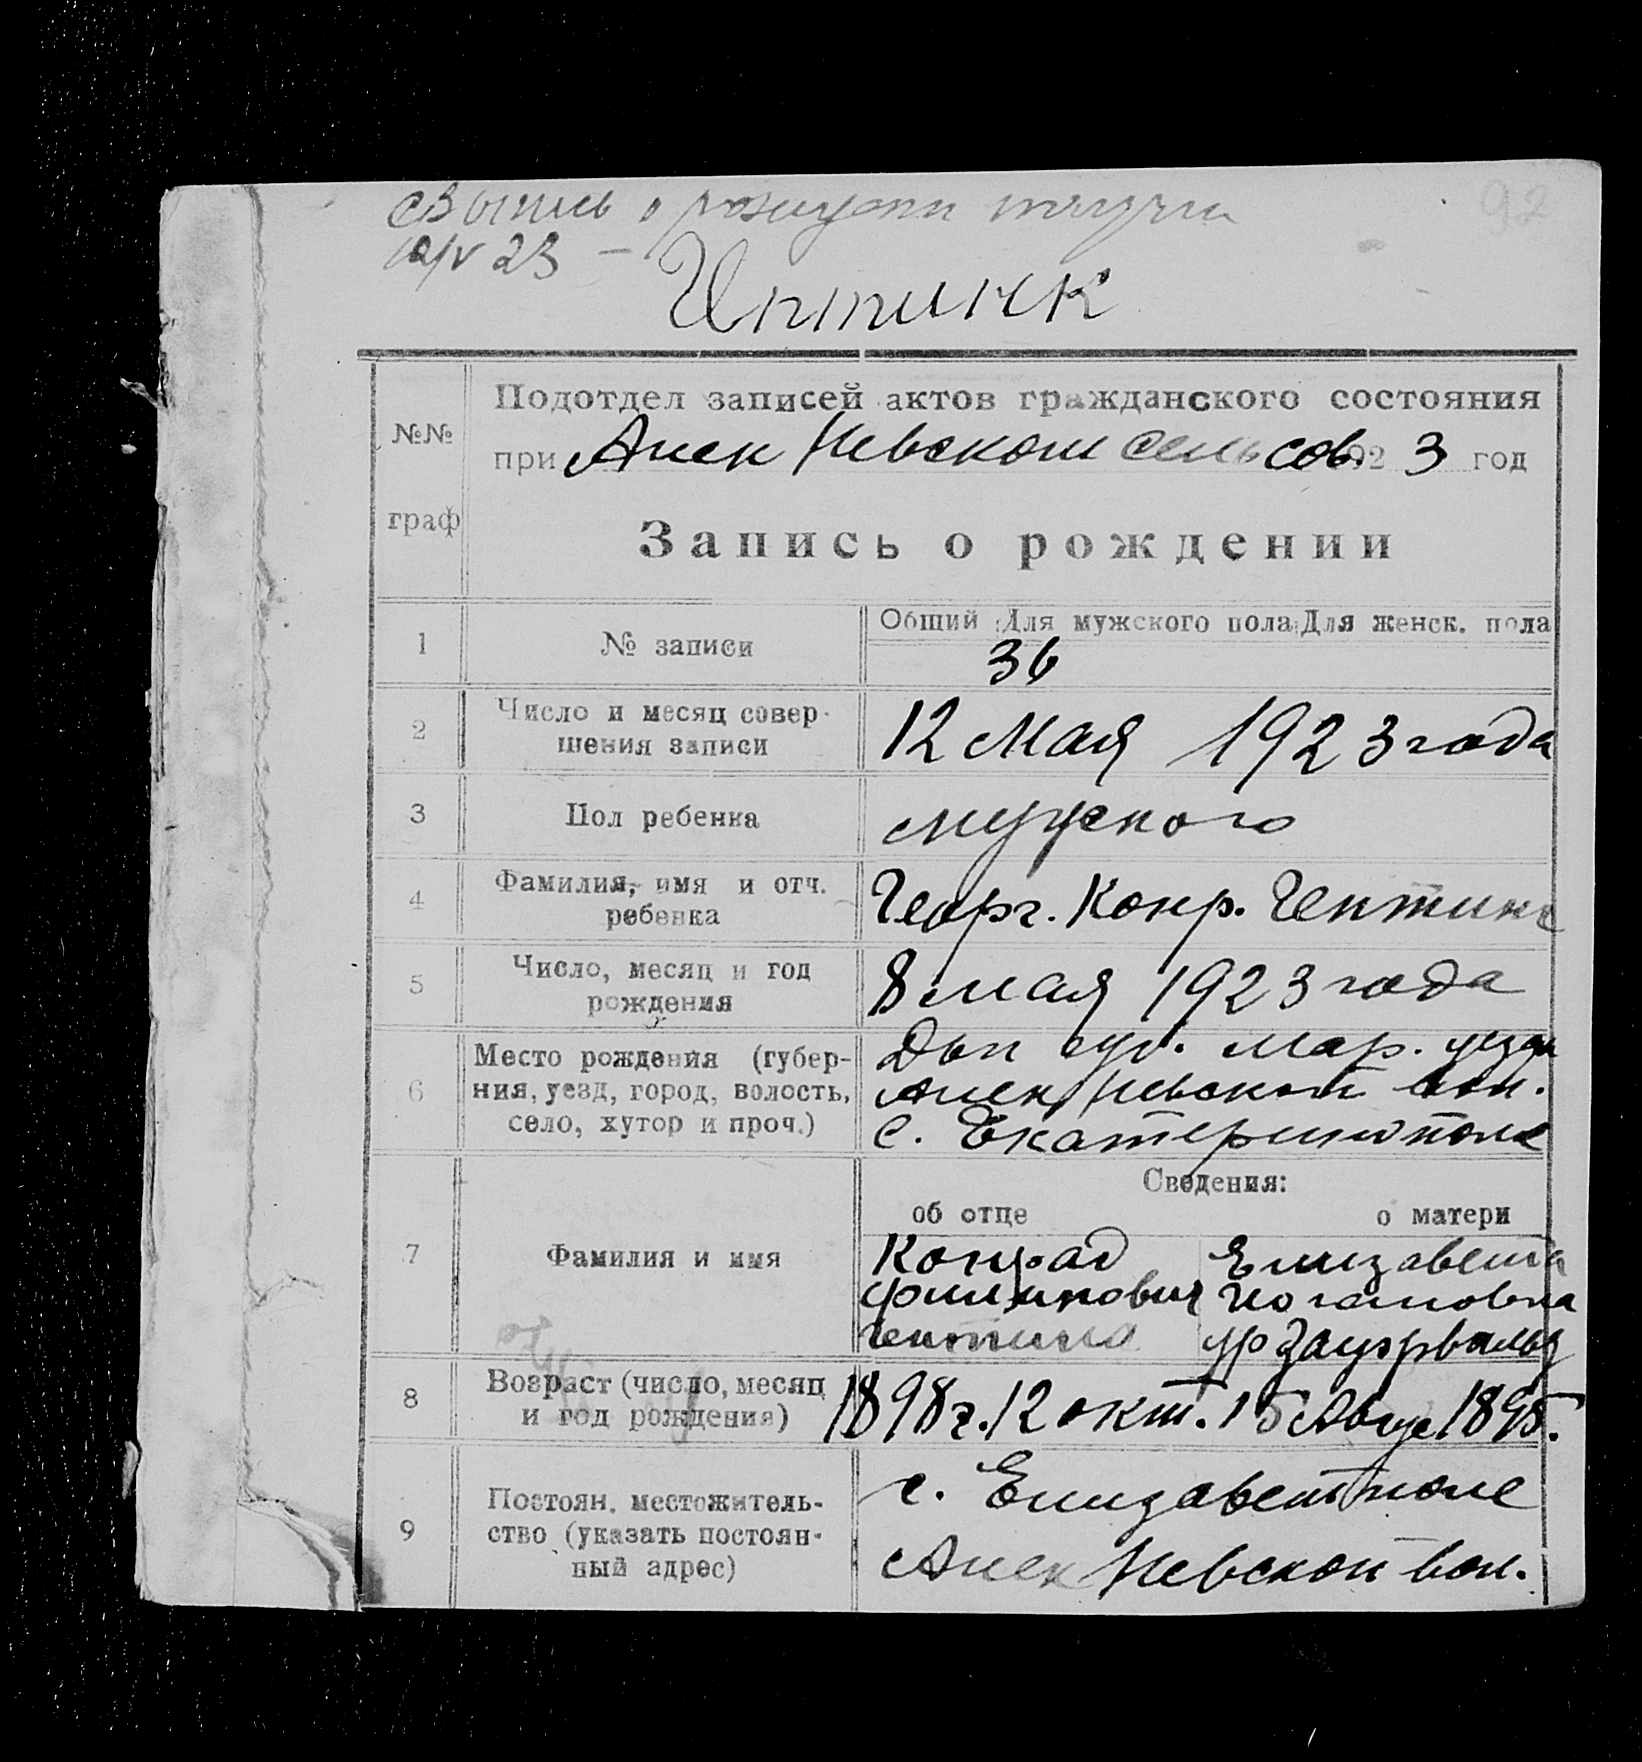 92
10/V 23 —
Иптинк
Подотдел записей актов гражданского состояния
при Алек Невском сельсов. 192 3 год
№№
граф
Запись о рождении
Общий Для мужского пола Для женск. пола
1 № записи 36
2 Число и месяц совер-
шения записи
12 мая 1923 года
3 Пол ребенка мужского
4 Фамилия, имя и отч.
ребенка
Георг. Конр. Гептинк
5 Число, месяц и год
рождения
8 мая 1923 года
6 Место рождения (губер-
ния, уезд, город, волость,
село, хутор и проч.)
Дон губ. Мар. уезда
Алек Невской вол.
с. Екатеринополе
Сведения:
об отце о матери
7 Фамилия и имя
Конрад Елизавета
Филипович Иогановна
Гептинк ур Зауэрвальд
8 Возраст (число, месяц
и год рождения)
1898 г. 12 окт. 15 Авгус 1895.
9 Постоян. местожитель-
ство (указать постоян-
ный адрес)
с. Елизаветполе
Алек Невской вол.